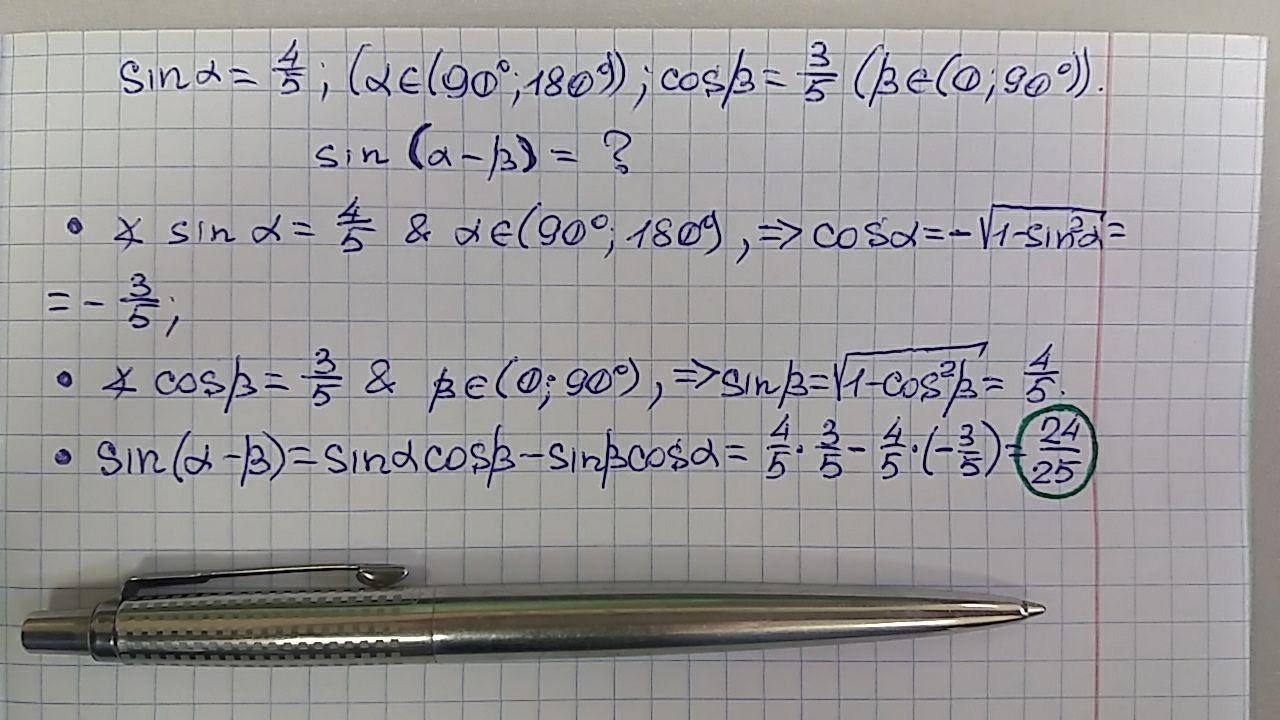 sin α = 4/5; (α∈(90°;180°)); cos β = 3/5 (β∈(0;90°)).
sin (α-β) = ?
• ∡ sin α = 4/5 & α∈(90°;180°), => cos α = -√(1-sin²α) =
= - 3/5;
• ∡ cos β = 3/5 & β∈(0;90°), => sin β = √(1-cos²β) = 4/5.
• sin(α-β) = sin α cos β - sin β cos α = 4/5 · 3/5 - 4/5 · (-3/5) = 24/25